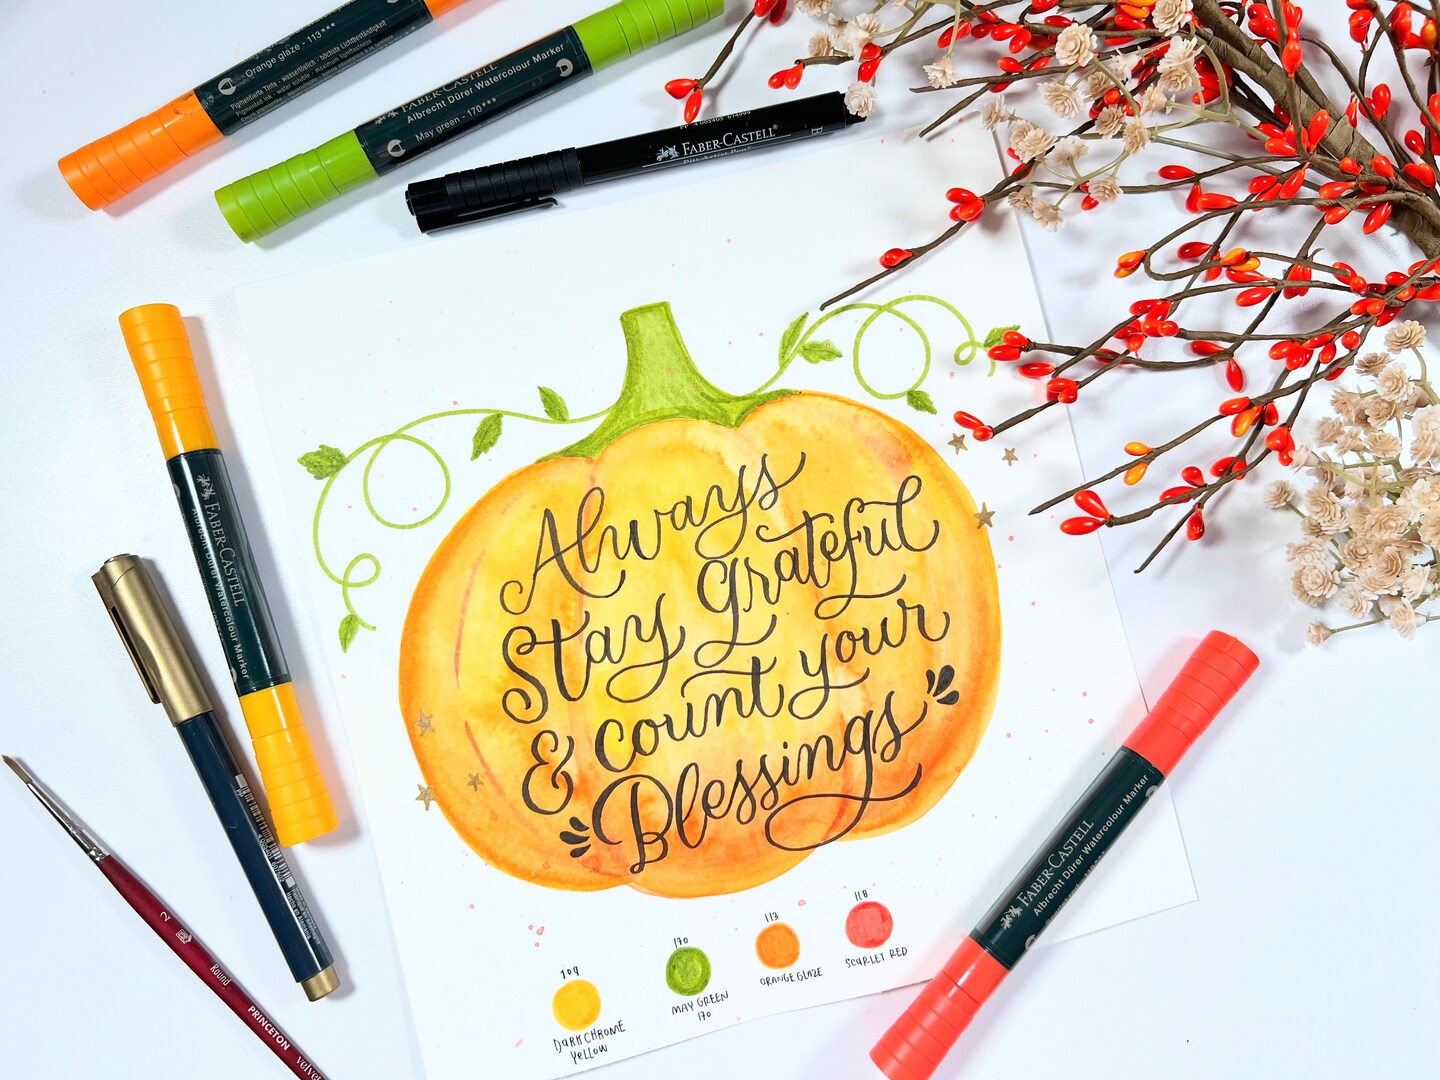 Orange glaze - 113***
Pigmentierte Tinte - wasserlöslich - höchste Lichtbeständigkeit
FABER-CASTELL
Albrecht Dürer Watercolour Marker
May green - 170***
FABER-CASTELL
Pitt Artist Pen
B
FABER-CASTELL
Albrecht Dürer Watercolour Marker
Always
Stay grateful
& count your
Blessings
109
DARK CHROME
YELLOW
170
MAY GREEN
170
113
ORANGE GLAZE
118
SCARLET RED
FABER-CASTELL
Albrecht Dürer Watercolour Marker
2
Round
PRINCETON
velvet